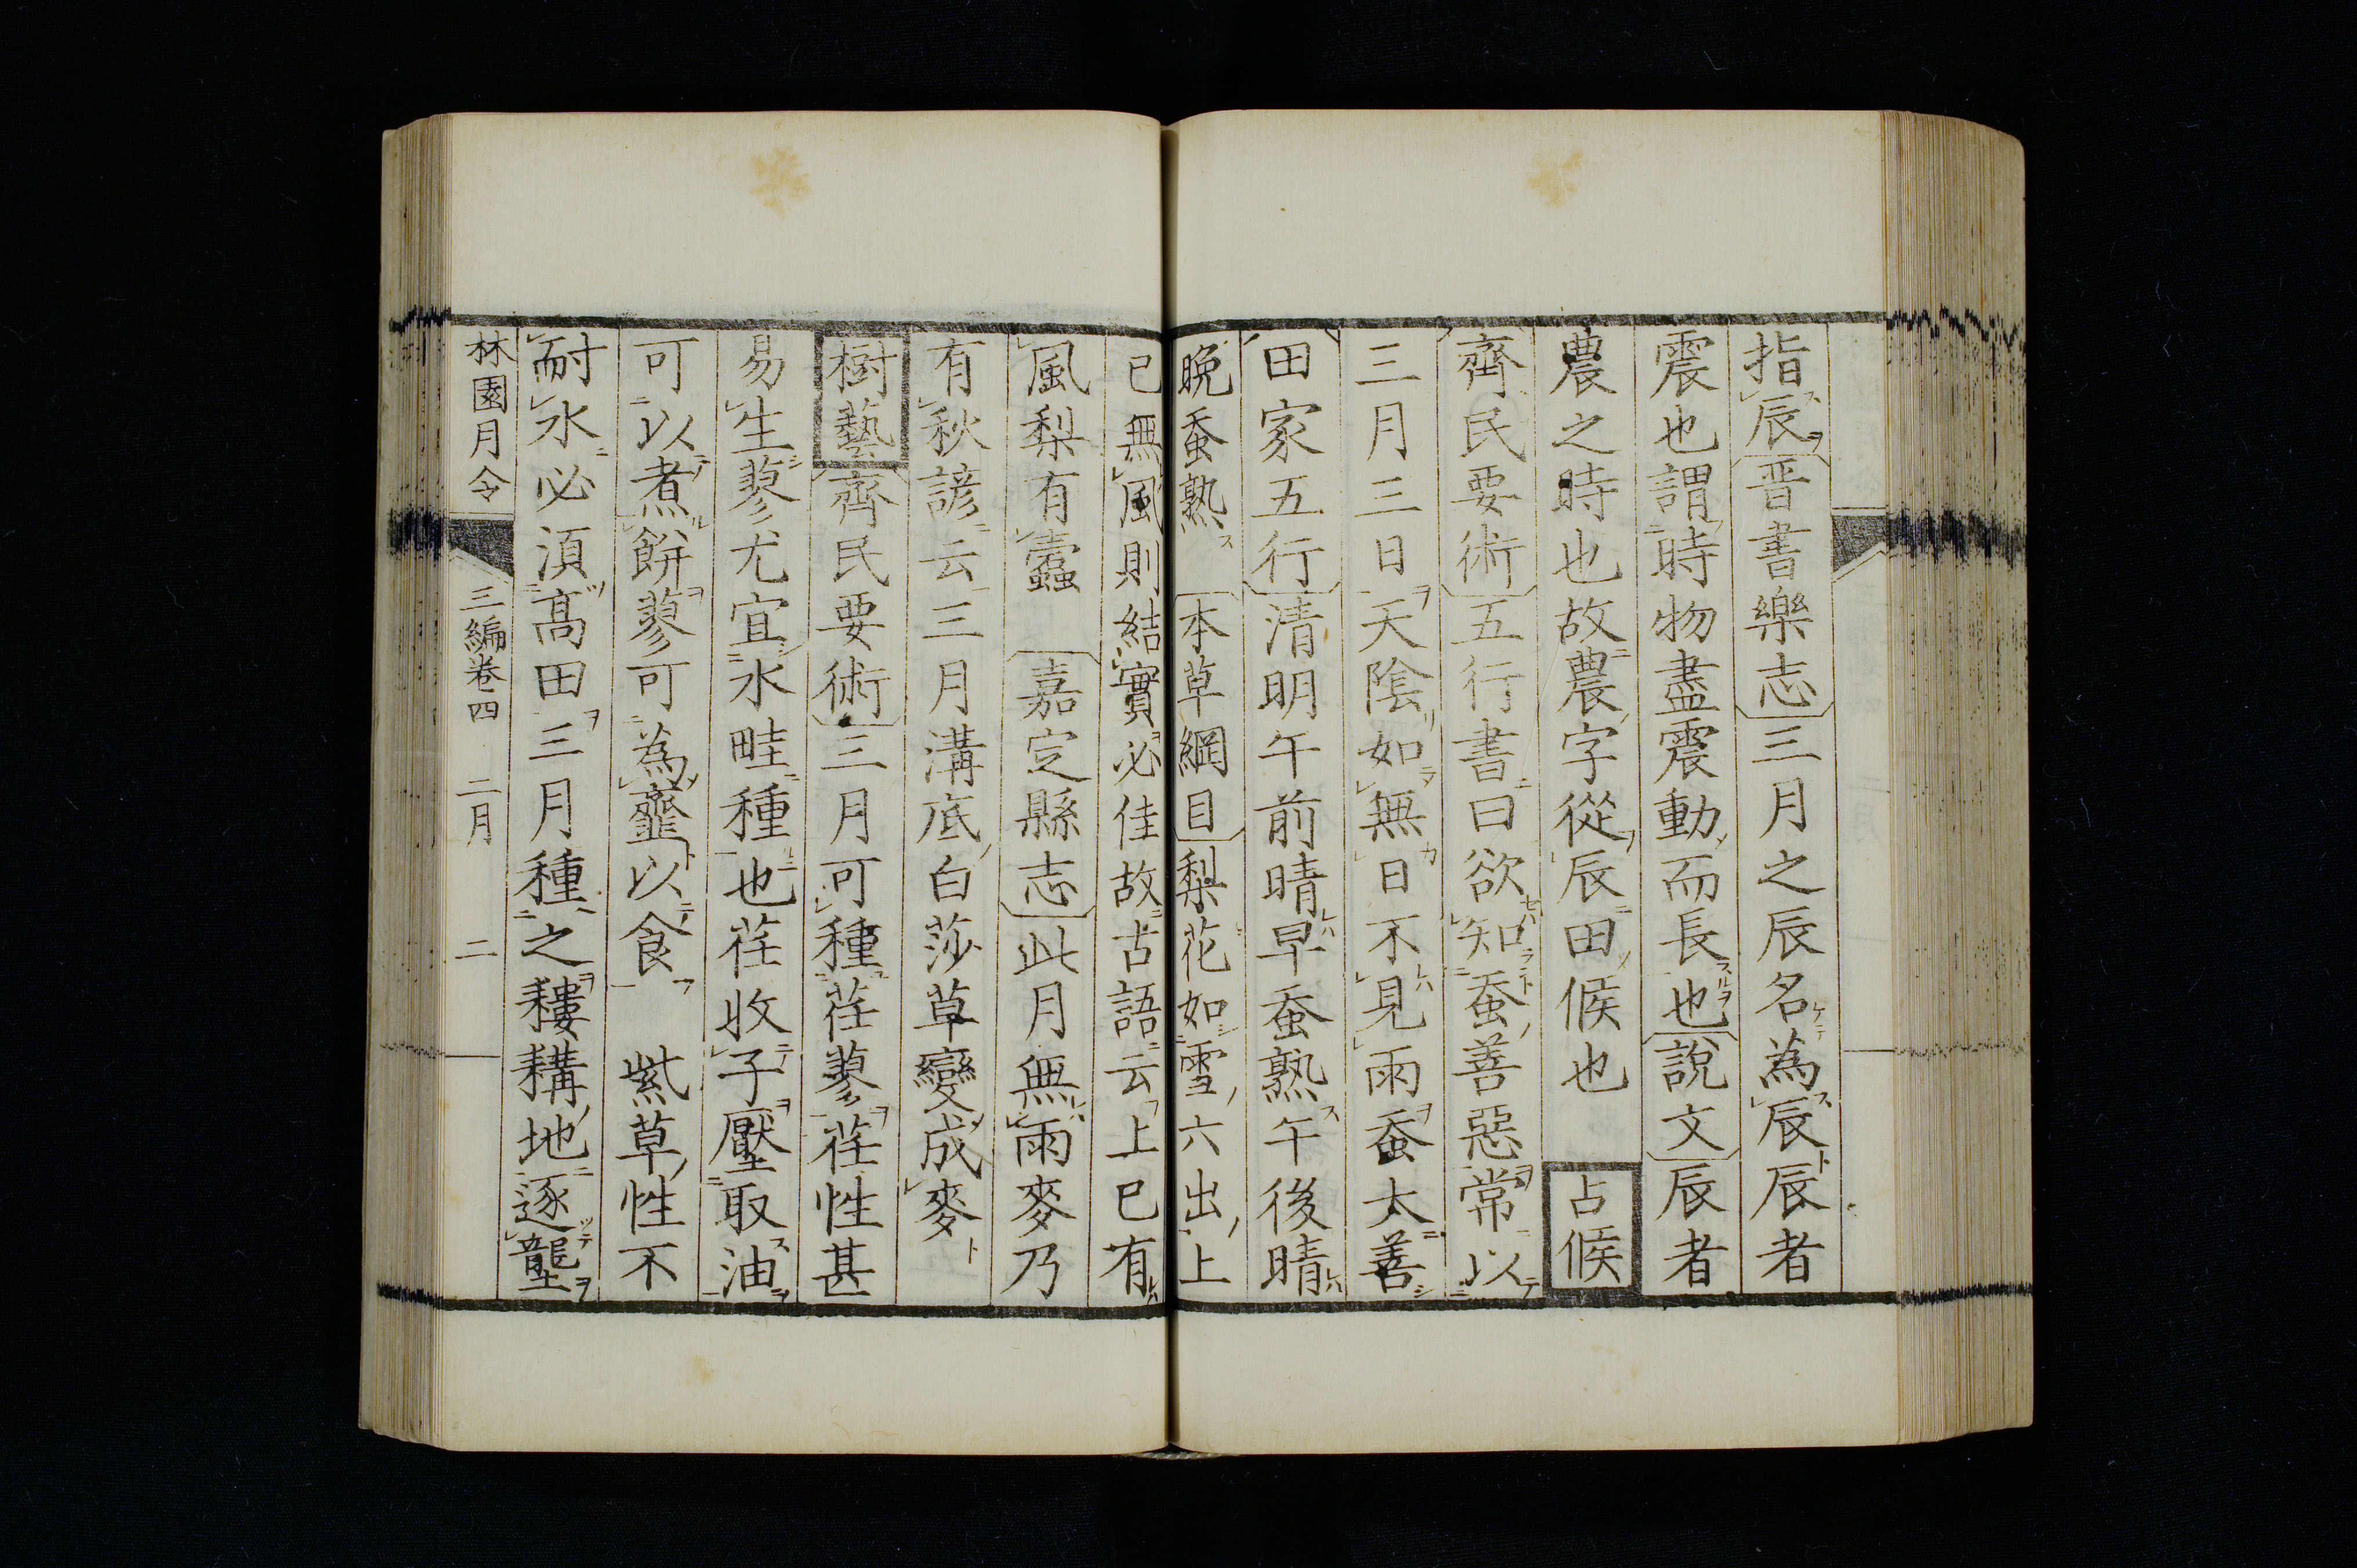 指辰晋書樂志三月之辰名為辰辰者
震也謂時物盡震動而長也說文辰者
農之時也故農字從辰田候也 占候
齊民要術五行書曰欲知蚕善惡常以
三月三日天陰如無日不見雨蚕大善
田家五行清明午前晴早蚕熟午後晴
晩蚕熟 本草綱目梨花如雪六出上
巳無風則結實必佳故古語云上巳有
風梨有蠹 嘉定縣志此月無雨麥乃
有秋諺云三月溝底白莎草變成麥
樹藝齊民要術三月可種荏蓼荏性甚
易生蓼尤宜水畦種也荏收子壓取油
可以煮餅蓼可為虀以食 紫草性不
耐水必須高田三月種之耬耩地逐壟
林園月令 三編卷四 二月 二